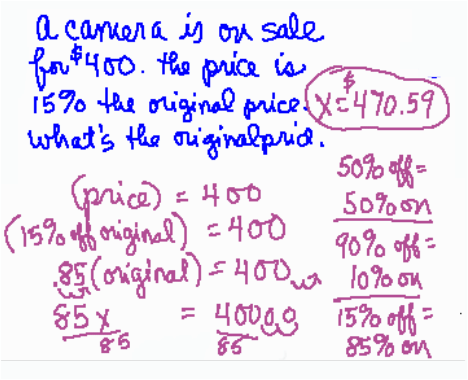 A camera is on sale
for $400. The price is
15% the original price.
What's the original price.
x = $470.59
(price) = 400
(15% off original) = 400
.85(original) = 400
85x = 40000
85 85
50% off =
50% on
90% off =
10% on
15% off =
85% on